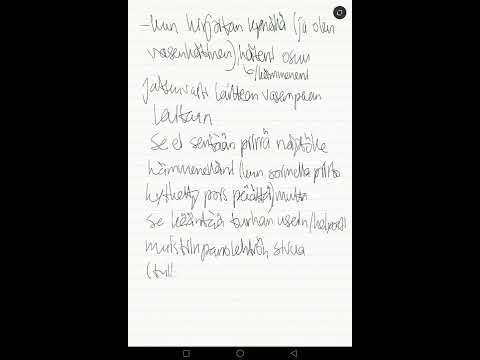 - kun kirjoitan kynällä (ja olen
vasenkätinen), käteni osuu
/kämmeneni
jatkuvasti laitteen vasempaan
laitaan
Se ei sentään piirrä näytölle
kämmenelläni (kun sormella piirto
kytketty pois päältä) mutta
se kääntää turhan usein/helposti
muistiinpanolehtiön sivua
(tul